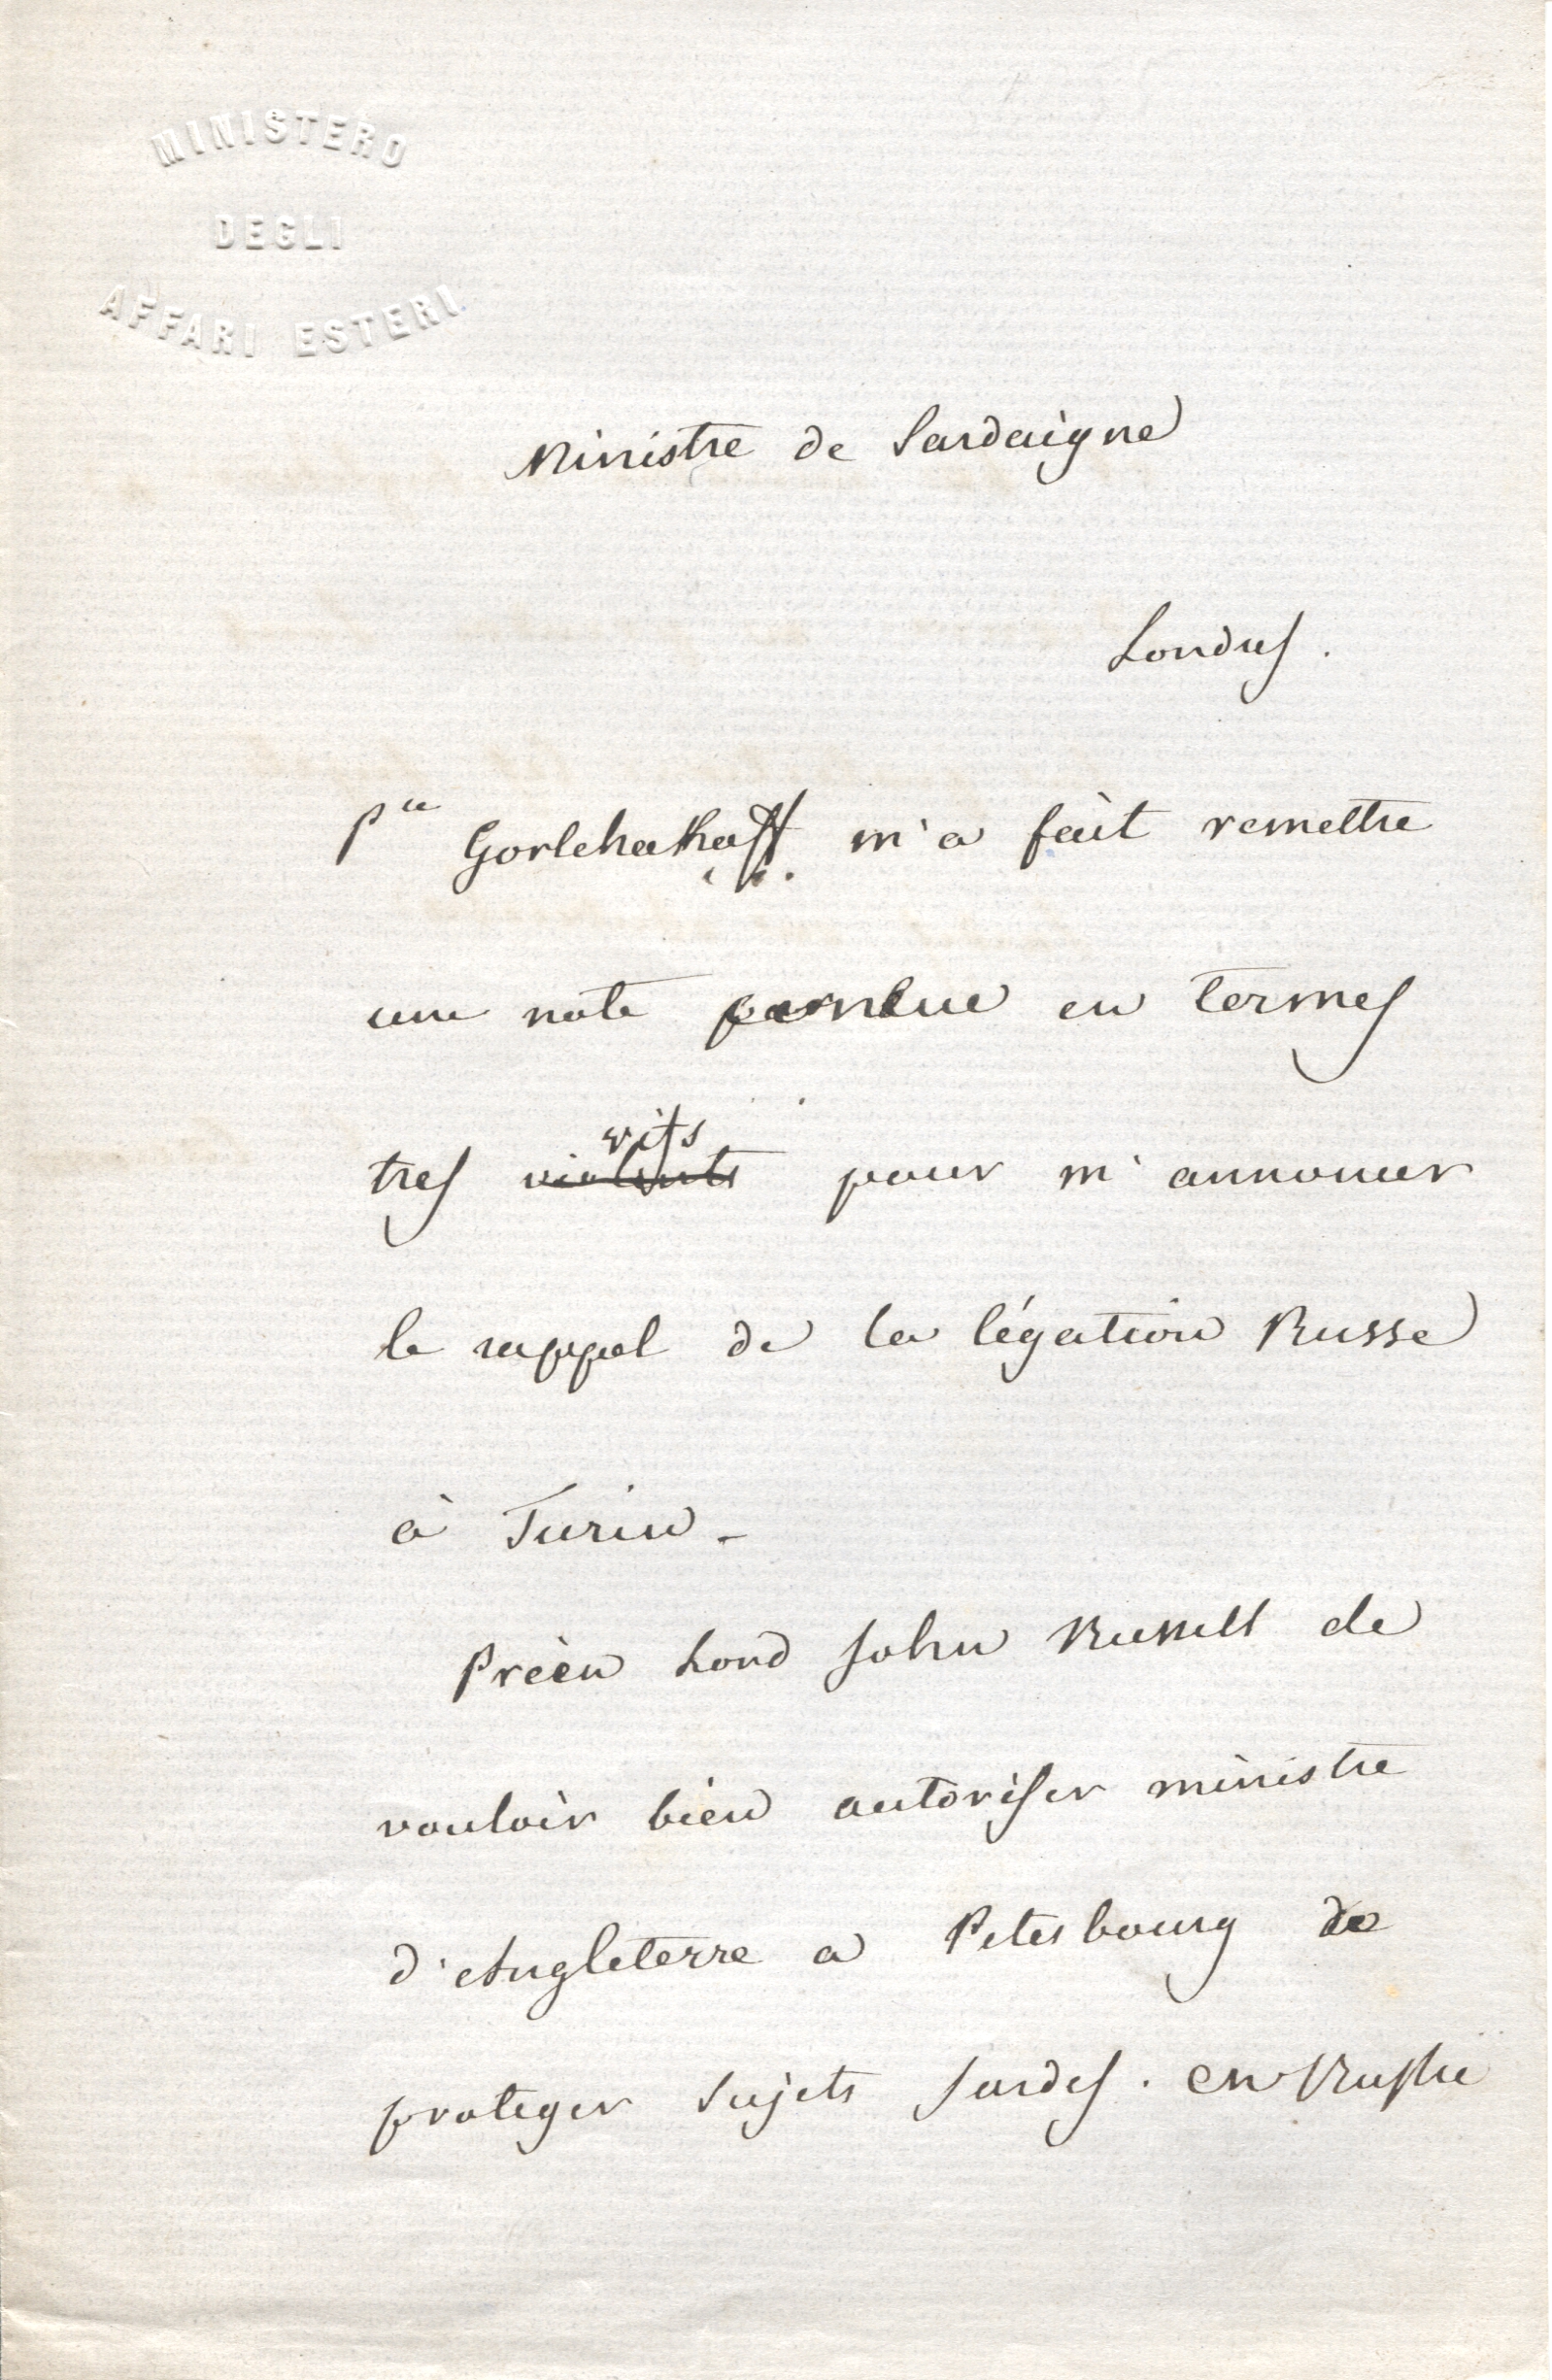 MINISTERO
DEGLI
AFFARI ESTERI.
Ministre de Sardaigne
Londres.
Pce Gortchakoff m'a fait remettre
une note conçue en termes
tres violents vifs pour m'annoncer
le rappel de la légation Russe
à Turin -
Prièn Lord John Russell de
vouloir bien autoriser ministre
d'Angleterre a Petersbourg de
proteger sujets sardes. en Russie